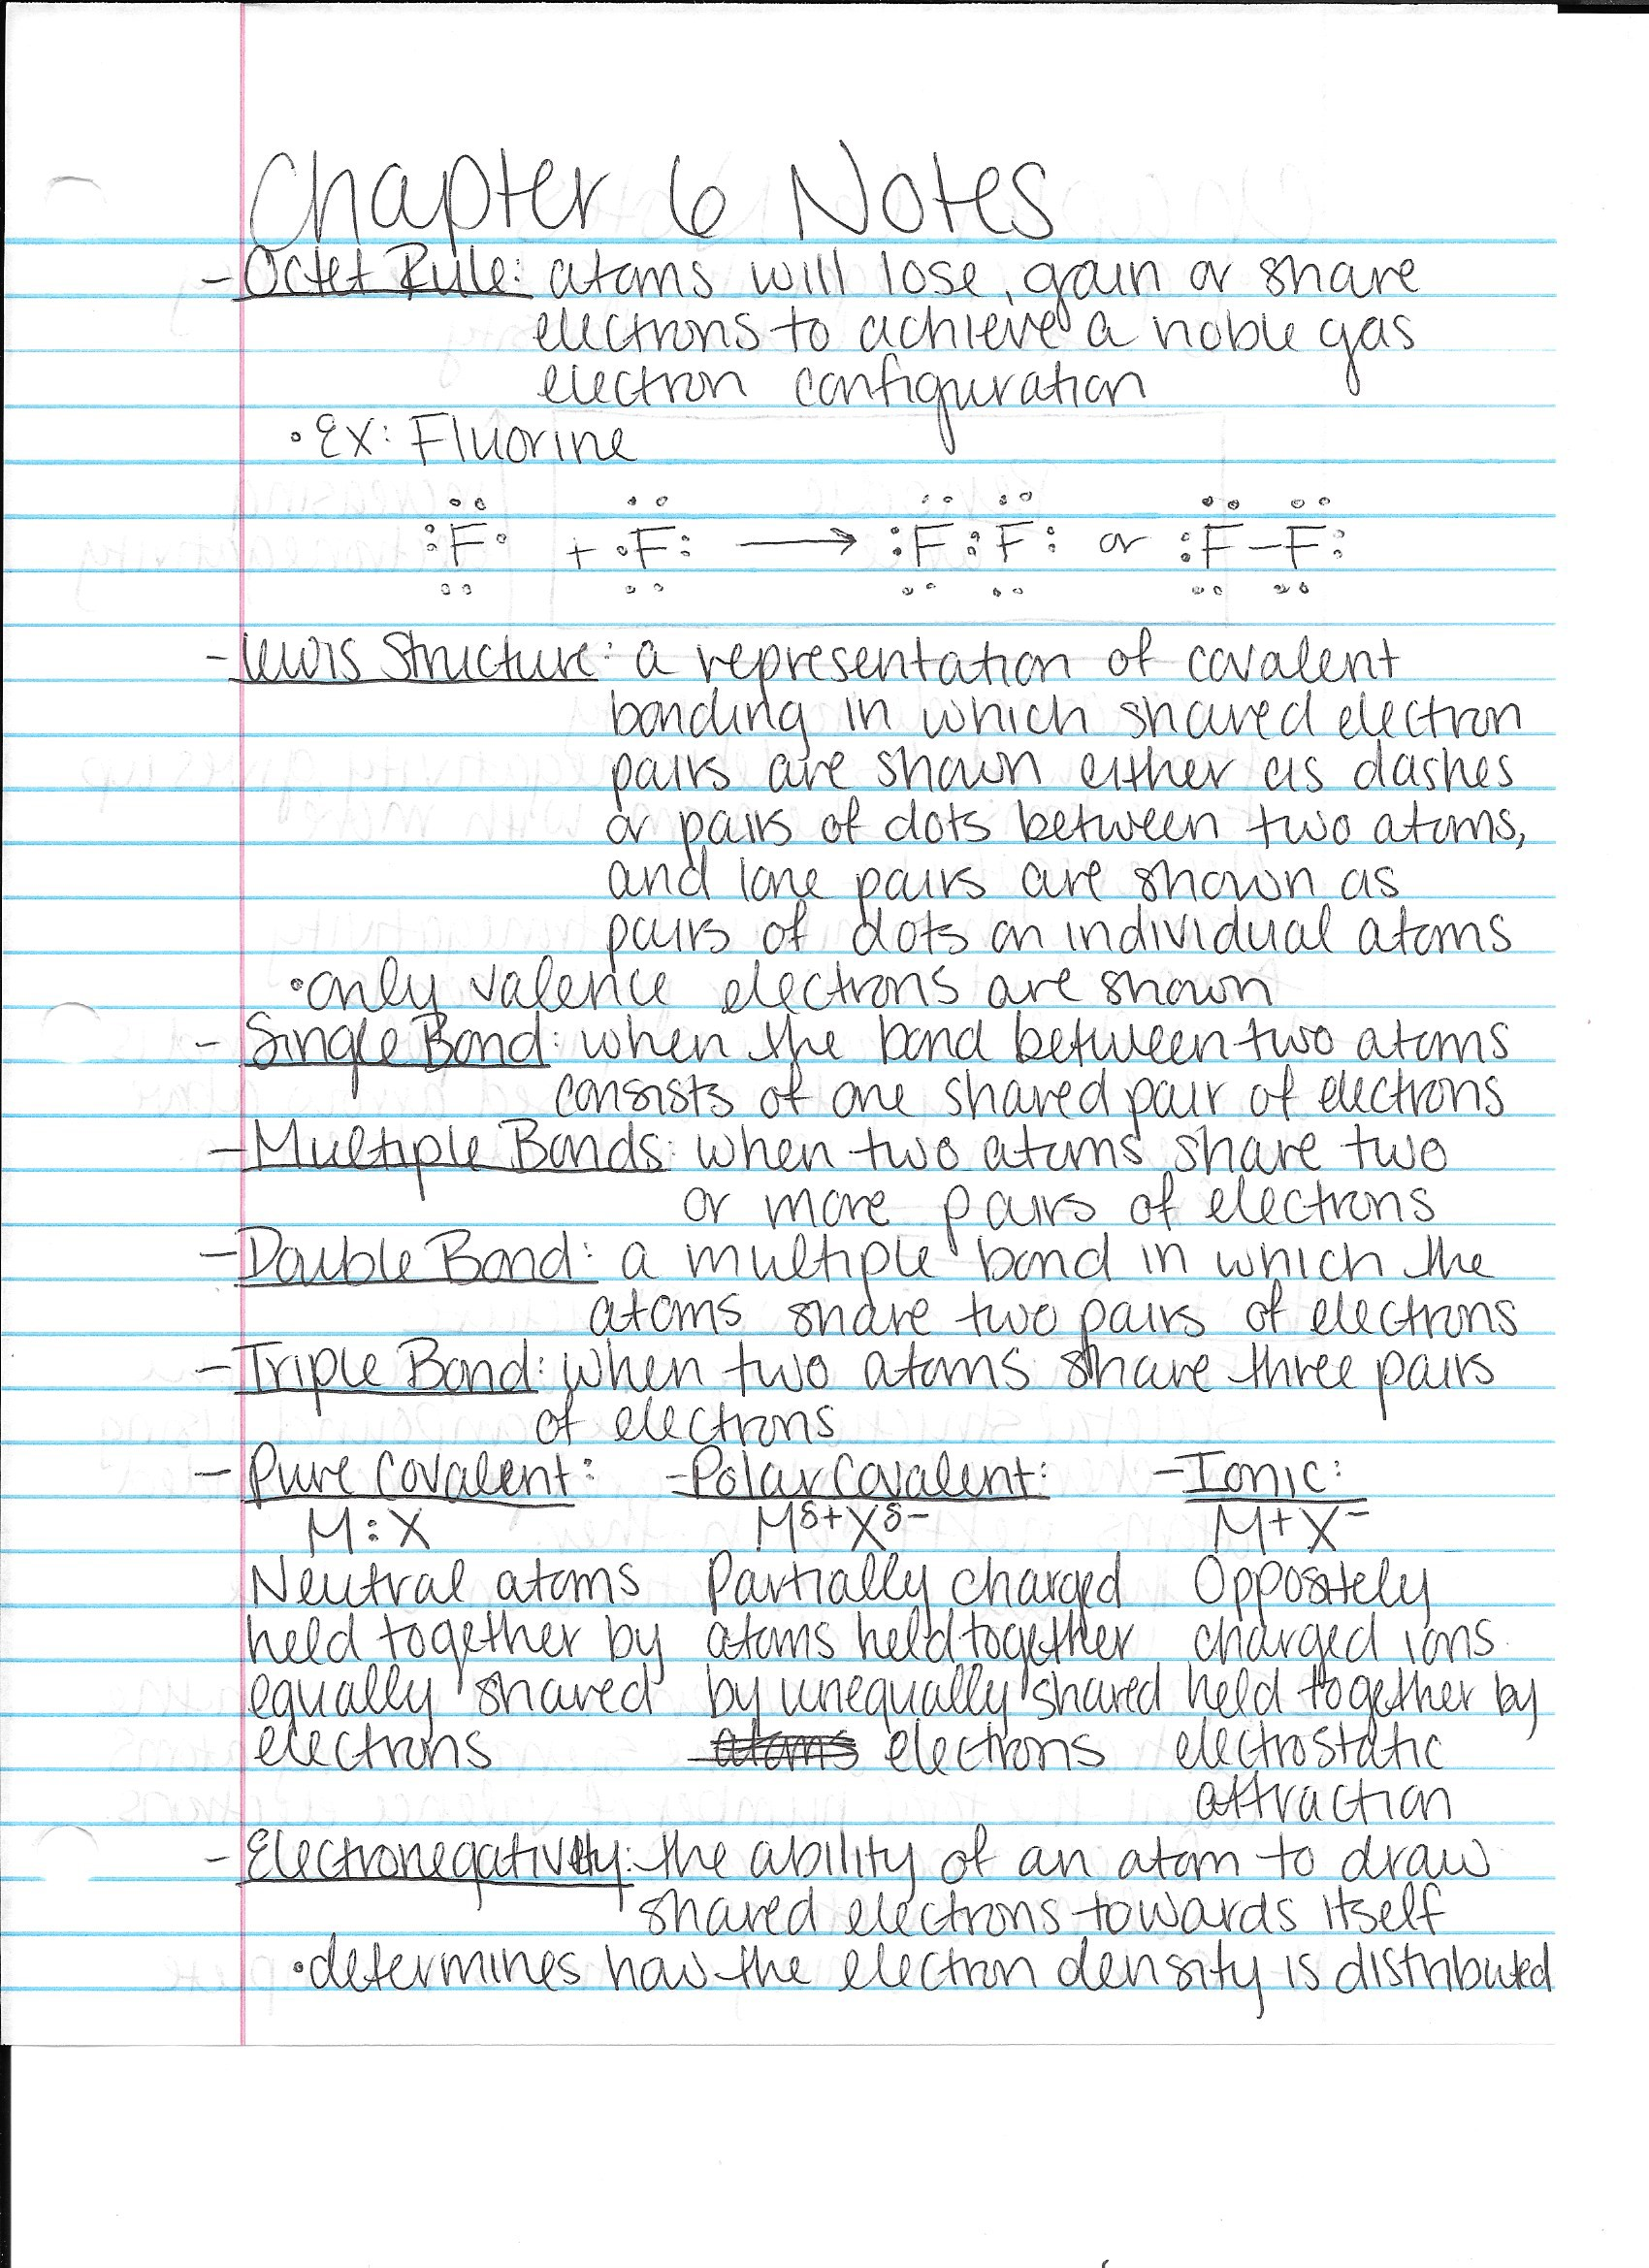 Chapter 6 Notes
- Octet Rule: atoms will lose, gain or share
electrons to achieve a noble gas
electron configuration
• Ex: Fluorine
:F· + ·F: → :F:F: or :F–F:
- Lewis Structure: a representation of covalent
bonding in which shared electron
pairs are shown either as dashes
or pairs of dots between two atoms,
and lone pairs are shown as
pairs of dots on individual atoms
• only valence electrons are shown
- Single Bond: when the bond between two atoms
consists of one shared pair of electrons
- Multiple Bonds: when two atoms share two
or more pairs of electrons
- Double Bond: a multiple bond in which the
atoms share two pairs of electrons
- Triple Bond: when two atoms share three pairs
of electrons
- Pure Covalent:
M:X
Neutral atoms
held together by
equally shared
electrons
- Polar Covalent:
Mδ+Xδ−
Partially charged
atoms held together
by unequally shared
atoms electrons
- Ionic:
M+X−
Oppositely
charged ions
held together by
electrostatic
attraction
- Electronegativity: the ability of an atom to draw
shared electrons towards itself
• determines how the electron density is distributed